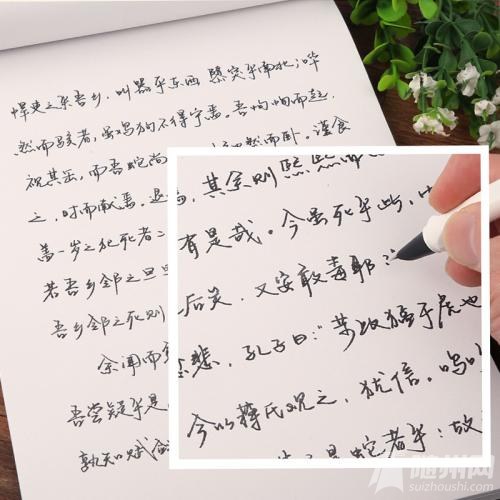 悍吏之来吾乡，叫嚣乎东西 隳突乎南北；哗
然而骇者，虽鸡狗不得宁焉。吾恂恂而起，
视其缶，而吾蛇尚 然而卧。谨食
之，时而献焉。退
盖一岁之犯死者二
若吾乡邻之旦旦
吾乡邻之死则
余闻而
吾尝疑乎是
孰知赋敛
，其余则熙熙而
有是哉。今虽死乎此，
后矣，又安敢毒耶
悲，孔子曰：“苛政猛于虎也
今以蒋氏观之，犹信。呜呼
是蛇者乎！故
随州网
suizhoushi.com